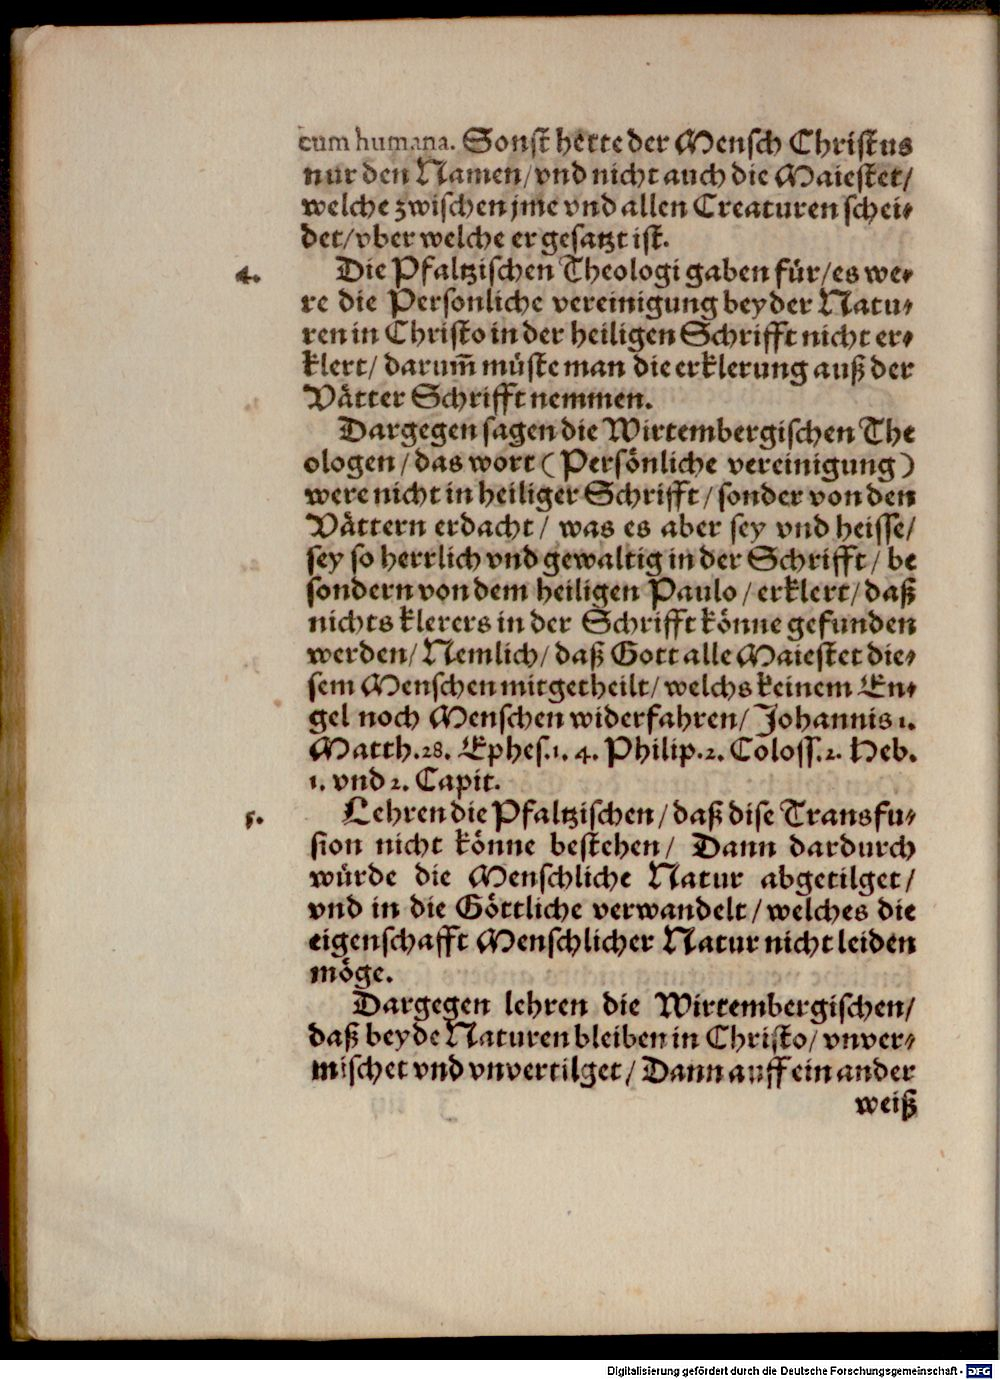 cum humana. Sonst hette der Mensch Christus
nur den Namen/ vnd nicht auch die Maiestet/
welche zwischen jme vnd allen Creaturen schei⸗
det/ vber welche er gesatzt ist.
4. Die Pfaltzischen Theologi gaben für/ es we⸗
re die Personliche vereinigung beyder Natu⸗
ren in Christo in der heiligen Schrifft nicht er⸗
klert/ darum̃ müste man die erklerung auß der
Vätter Schrifft nemmen.
Dargegen sagen die Wirtembergischen The
ologen/ das wort (Persönliche vereinigung)
were nicht in heiliger Schrifft/ sonder von den
Vättern erdacht/ was es aber sey vnd heisse/
sey so herrlich vnd gewaltig in der Schrifft/ be
sondern von dem heiligen Paulo/ erklert/ daß
nichts klerers in der Schrifft könne gefunden
werden/ Nemlich/ daß Gott alle Maiestet die⸗
sem Menschen mitgetheilt/ welchs keinem En⸗
gel noch Menschen widerfahren/ Johannis 1.
Matth. 28. Ephes. 1. 4. Philip. 2. Coloss. 2. Heb.
1. vnd 2. Capit.
5. Lehren die Pfaltzischen/ daß dise Transfu⸗
sion nicht könne bestehen/ Dann dardurch
würde die Menschliche Natur abgetilget/
vnd in die Göttliche verwandelt/ welches die
eigenschafft Menschlicher Natur nicht leiden
möge.
Dargegen lehren die Wirtembergischen/
daß beyde Naturen bleiben in Christo/ vnver⸗
mischet vnd vnvertilget/ Dann auff ein ander
weiß
Digitalisierung gefördert durch die Deutsche Forschungsgemeinschaft - DFG